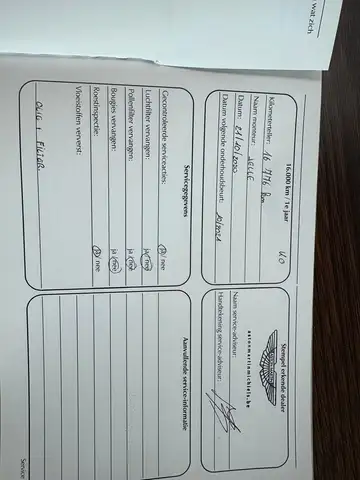 wat zich
16.000 km / 1e jaar
Kilometerteller: 16 776 km
Naam monteur: JELLE
Datum: 21/10/2020
Datum volgende onderhoudsbeurt: 10/2021
Stempel erkende dealer
astonmartinmichiels.be
Naam service-adviseur:
Handtekening service-adviseur:
Servicegegevens
Gecontroleerde serviceacties: ja / nee
Luchtfilter vervangen: ja / nee
Pollenfilter vervangen: ja / nee
Bougies vervangen: ja / nee
Roestinspectie: ja / nee
Vloeistoffen ververst:
OLIE + FILTER
Aanvullende service-informatie
Service